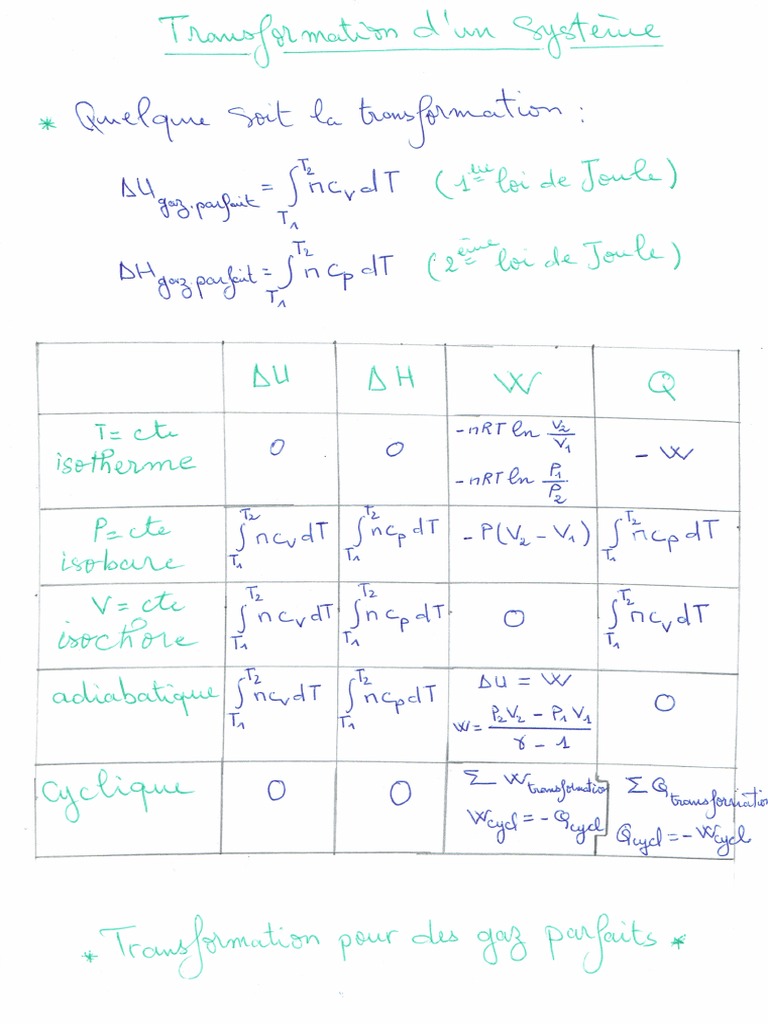 Transformation d'un système
* Quelque soit la transformation :
ΔU gaz.parfait = ∫T₁T₂ n cᵥ dT (1ère loi de Joule)
ΔH gaz.parfait = ∫T₁T₂ n cp dT (2ème loi de Joule)
ΔU ΔH W Q
T = cte
isotherme
0 0
-nRT ln V₂/V₁
-nRT ln P₁/P₂
- W
P = cte
isobare
∫T₁T₂ n cᵥ dT ∫T₁T₂ n cp dT - P(V₂ - V₁) ∫T₁T₂ n cp dT
V = cte
isochore
∫T₁T₂ n cᵥ dT ∫T₁T₂ n cp dT 0 ∫T₁T₂ n cᵥ dT
adiabatique
∫T₁T₂ n cᵥ dT ∫T₁T₂ n cp dT
ΔU = W
W = (P₂V₂ - P₁V₁)/(γ - 1)
0
Cyclique
0 0
Σ W transformation
Wcycl = - Qcycl
Σ Q transformation
Qcycl = - Wcycl
* Transformation pour des gaz parfaits *